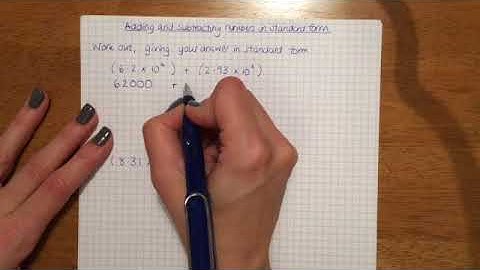 Adding and subtracting numbers in standard form.
Work out, giving your answer in standard form
(6.2 × 10⁴) + (2.93 × 10⁴)
62000 +
(8.31